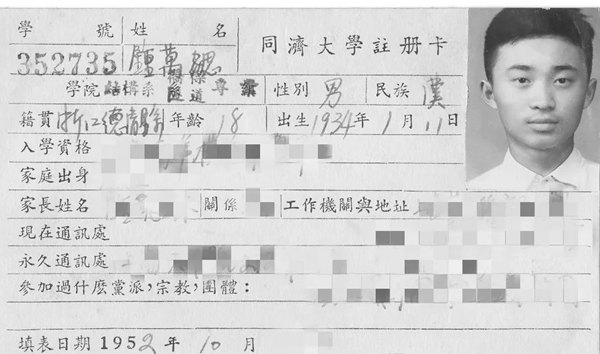 學號 姓名 同濟大學註册卡
352735 鍾萬勰
學院 結構系 隧道 專業 性別 男 民族 漢
籍貫 浙江德清縣 年齡 18 出生1934年1月11日
入學資格
家庭出身
家長姓名 關係 工作機關與地址
現在通訊處
永久通訊處
參加過什麽黨派,宗教,團體:
填表日期 1952年10月